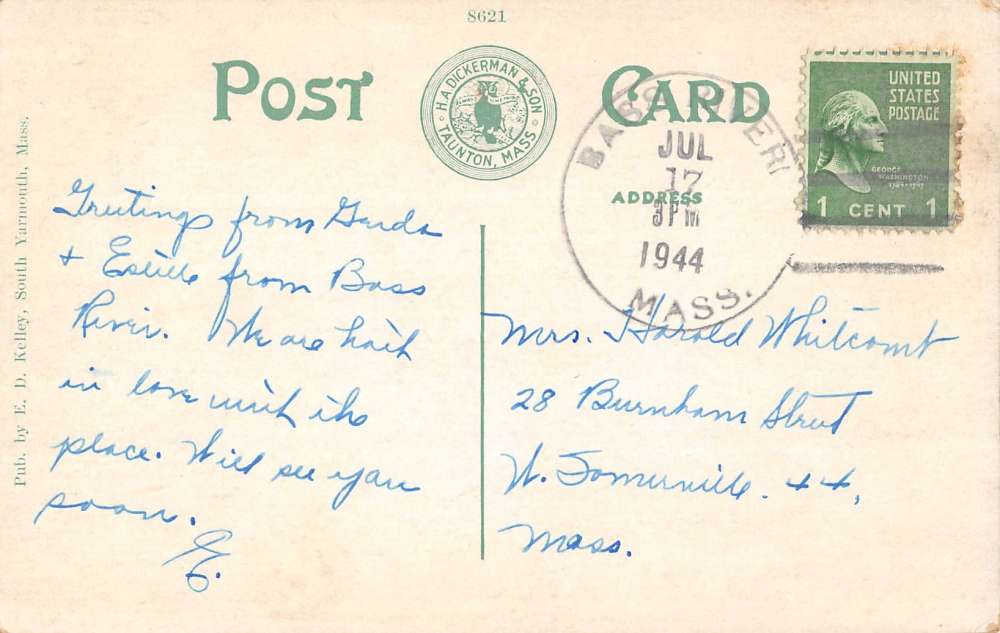 8621
POST CARD
H. A. DICKERMAN & SON
TAUNTON, MASS.
BASS RIVER
JUL
17
3 PM
1944
MASS.
UNITED
STATES
POSTAGE
GEORGE
WASHINGTON
1 CENT 1
ADDRESS
Pub. by E. D. Kelley, South Yarmouth, Mass.
Greetings from Gerda
+ Estelle from Bass
River. We are both
in love with the
place. Will see you
soon.
E.
Mrs. Harold Whitcomb
28 Burnham Street
W. Somerville. 44,
Mass.